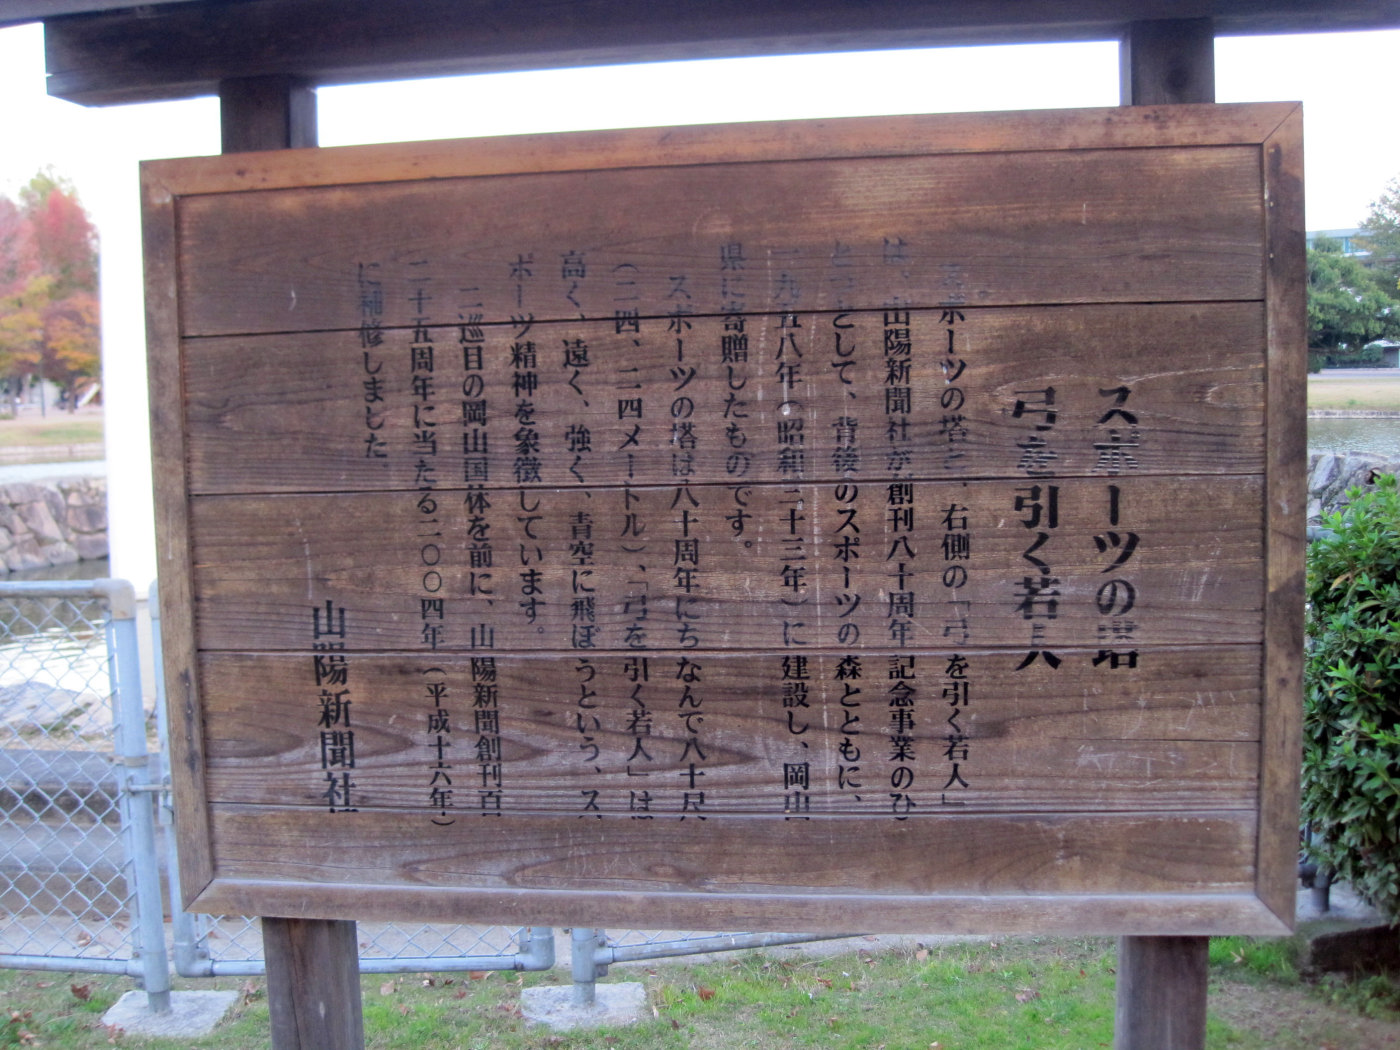 スポーツの塔
弓を引く若人
スポーツの塔と、右側の「弓を引く若人」
は、山陽新聞社が創刊八十周年記念事業のひ
とつとして、背後のスポーツの森とともに、
一九五八年（昭和三十三年）に建設し、岡山
県に寄贈したものです。
スポーツの塔は八十周年にちなんで八十尺
（二四、二四メートル）、「弓を引く若人」は
高く、遠く、強く、青空に飛ぼうという、ス
ポーツ精神を象徴しています。
二巡目の岡山国体を前に、山陽新聞創刊百
二十五周年に当たる二〇〇四年（平成十六年）
に補修しました。
山陽新聞社